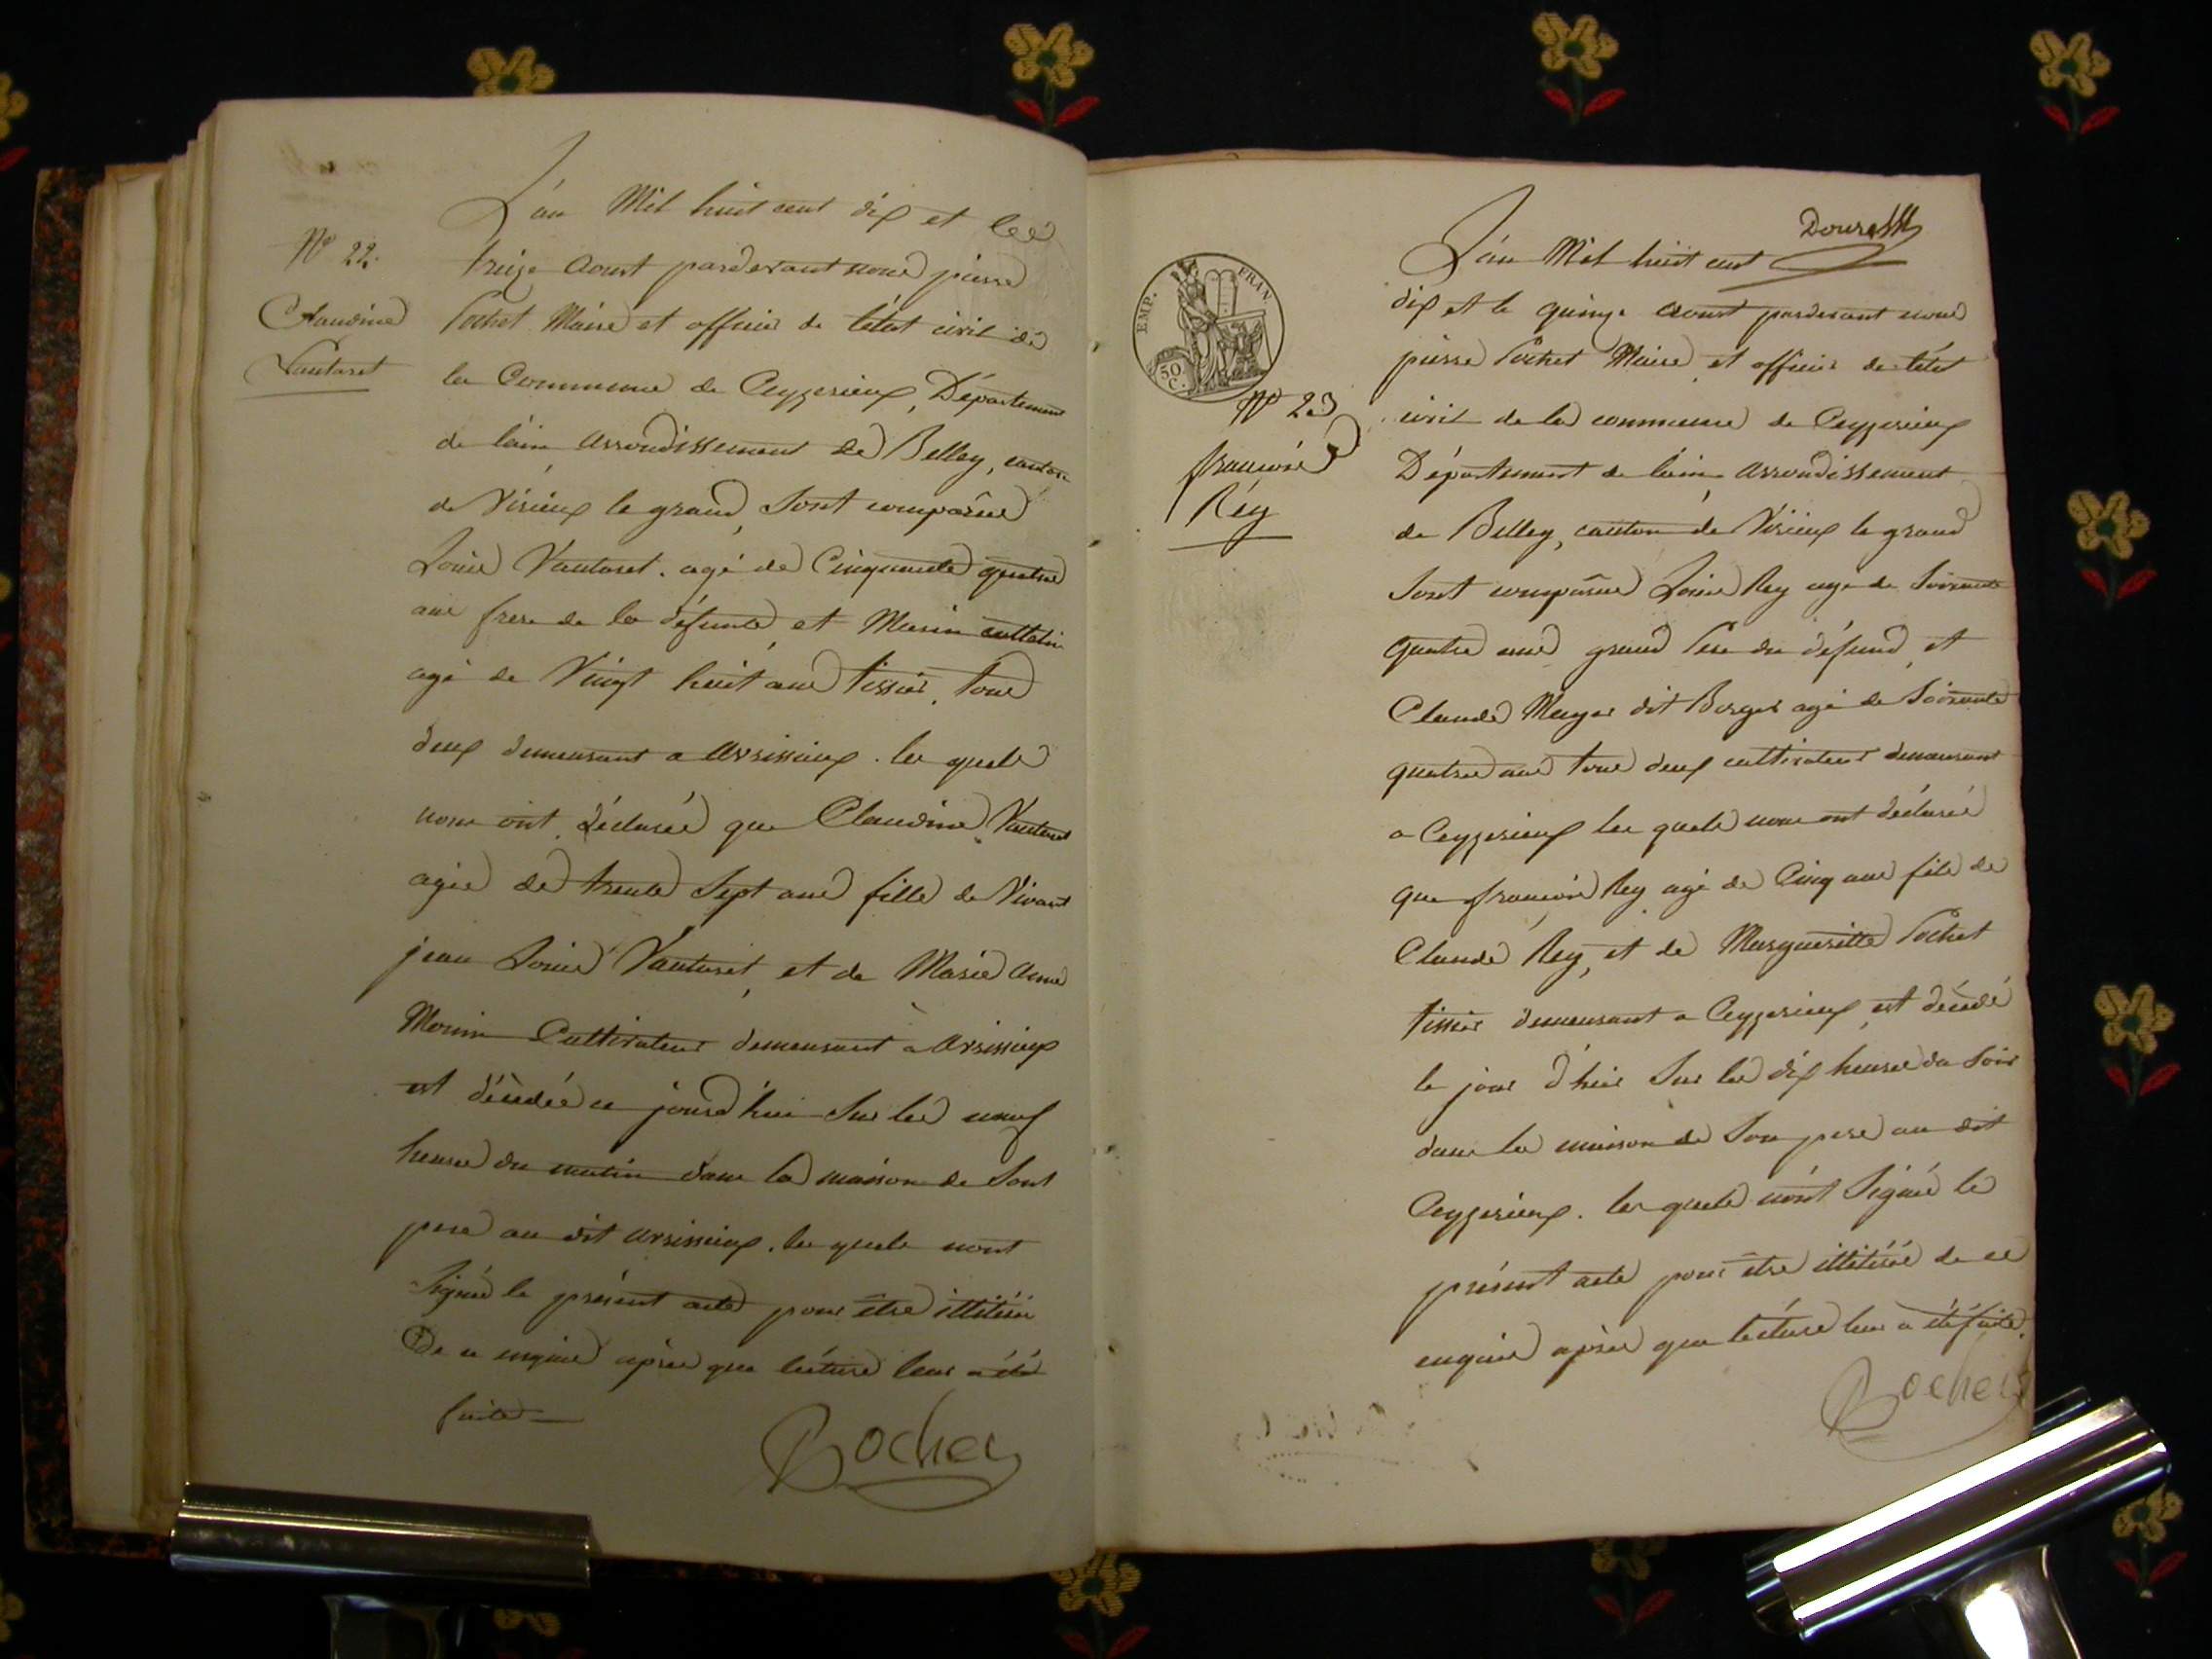 L'an Mil huit cent dix et les
Nº 22.
Claudine
Vautaret
treize aoust pardevant nous pierre
Pochet Maire et officier de l'état civil de
la Commune de Ceyzerieux, Département
de l'ain arrondissement de Belley, canton
de Virieux le grand, Sont comparus
Louis Vautaret. agé de Cinquante quatre
ans frere de la défunte, et Marin
agé de Vingt huit ans tissier, tous
deux demeurant a avrissieux. les quels
nous ont déclarés que Claudine Vautaret
agée de trente Sept ans fille de Vivant
jean Louis Vautaret, et de Marie anne
Monin Cultivateur demeurant a avrissieux
est décédée ce jourd'hui Sur les neuf
heures du matin dans la maison de Sont
pere au dit avrissieux. les quels nont
Signés le présent acte pour être illitérés
De ce enquis après que lecture leur a été
faite
Pochet
Douze
EMP. FRAN.
50 C.
Nº 23
françois
Rey
L'an Mil huit cent
dix et le quinze aoust pardevant nous
pierre Pochet Maire et officier de l'état
civil de la commune de Ceyzerieux
Département de l'ain arrondissement
de Belley, canton de Virieux le grand
Sont comparus Louis Rey agé de Soixante
quatre ans grand Pere du défund, et
Claude Mayer dit Berger agé de Soixante
quatre ans tous deux cultivateurs demeurant
a Ceyzerieux les quels nous ont déclarés
que françois Rey agé de Cinq ans fils de
Claude Rey, et de Margueritte Pochet
tissier demeurant a Ceyzerieux est décédé
le jour d'hier Sur les dix heures du Soir
dans la maison de Son pere au dit
Ceyzerieux. les quels n'ont Signés le
présent acte pour être illitérés de ce
enquis après que lecture leur a été faite.
Pochet